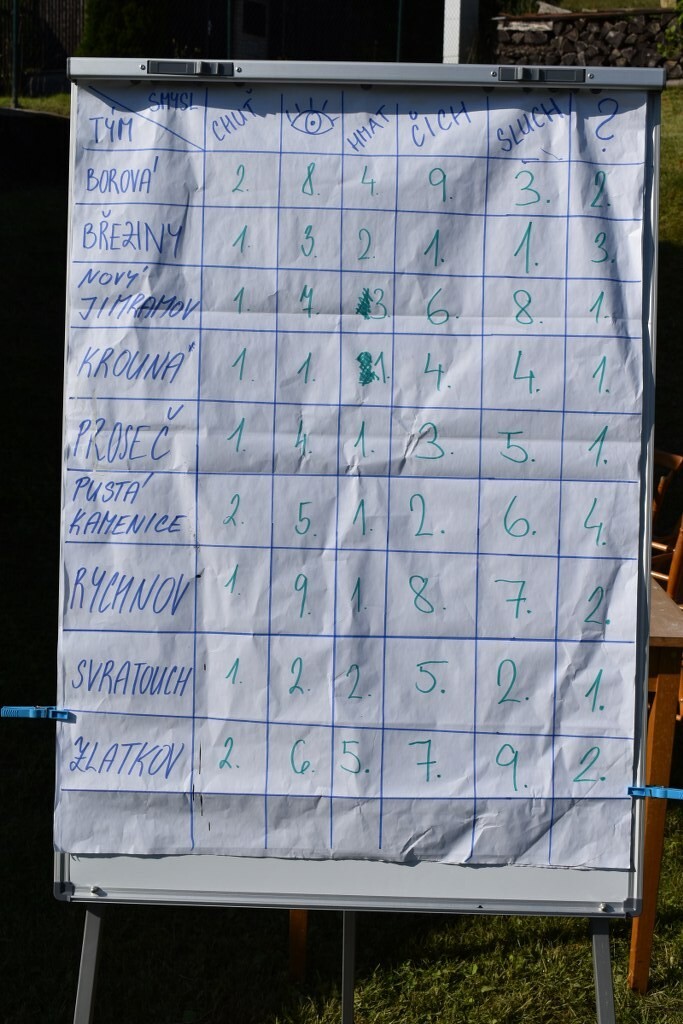 SMYSL
TÝM CHUŤ HMAT ČICH SLUCH ?
BOROVÁ 2. 8. 4. 9. 3. 2.
BŘEZINY 1. 3. 2. 1. 1. 3.
NOVÝ
JIMRAMOV 1. 7. 3. 6. 8. 1.
KROUNA* 1. 1. 1. 4. 4. 1.
PROSEČ 1. 4. 1. 3. 5. 1.
PUSTÁ
KAMENICE 2. 5. 1. 2. 6. 4.
RYCHNOV 1. 9. 1. 8. 7. 2.
SVRATOUCH 1. 2. 2. 5. 2. 1.
ZLATKOV 2. 6. 5. 7. 9. 2.